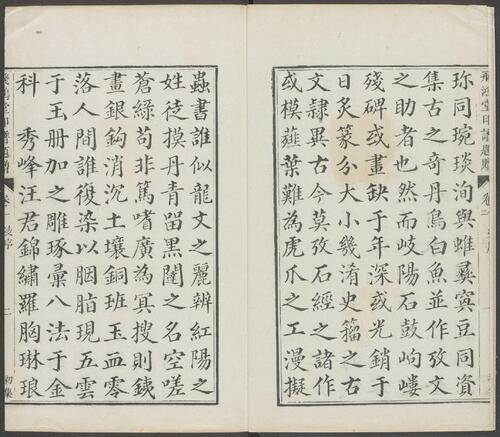 珎同琬琰洵與蜼彝寘豆同資
集古之奇丹烏白魚並作攷文
之助者也然而岐陽石鼓岣嶁
殘碑或畫缺于年深或光銷于
日炙篆分大小幾淆史籀之古
文隸異古今莫攷石經之諸作
或模薤葉難為虎爪之工漫擬
蟲書誰似龍文之麗辨紅陽之
姓徒摸丹青留黑闥之名空嗟
蒼綠苟非篤嗜廣為冥搜則銕
畫銀鉤消沉土壤銅班玉血零
落人閒誰復染以胭脂現五雲
于玉冊加之雕琢彙八法于金
科 秀峰汪君錦繡羅胸琳琅
飛鴻堂印譜題贈
卷二
初集